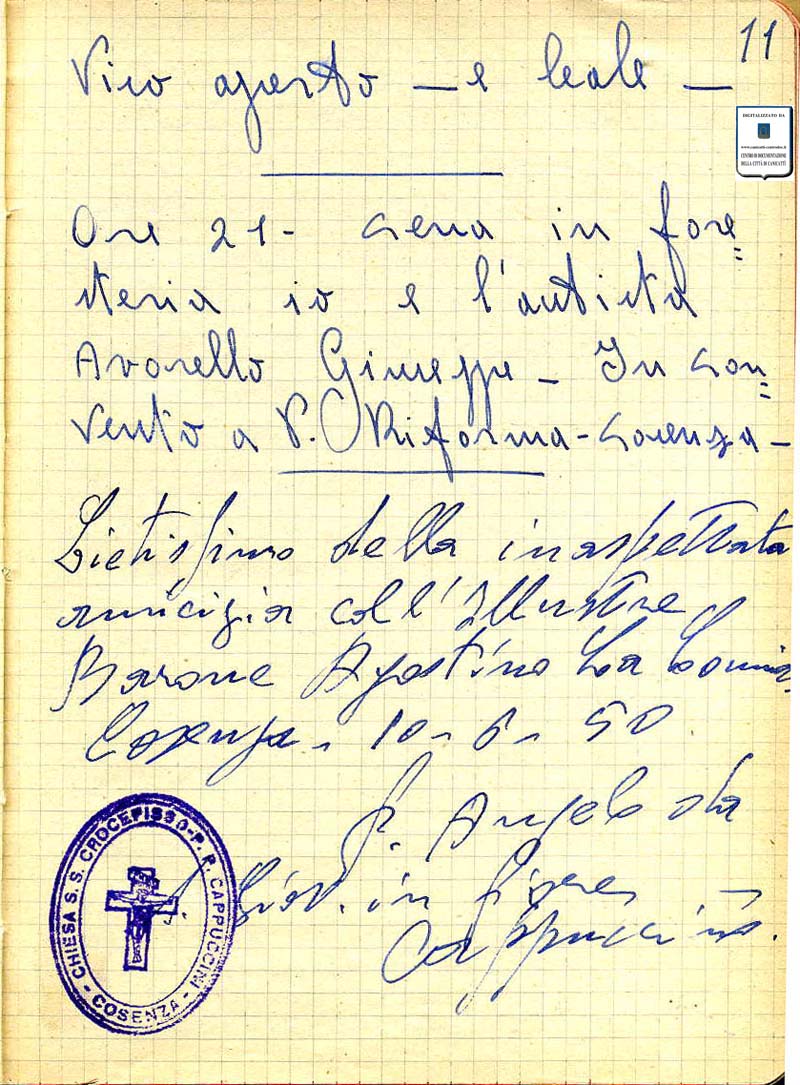 11
Vivo aperto — e leale —
DIGITALIZZATO DA
www.canicatti-centrodoc.it
CENTRO DI DOCUMENTAZIONE
DELLA CITTÀ DI CANICATTÌ
Ore 21 - cena in fore=
steria io e l'autista
Avarello Giuseppe - In con=
vento a P. Riforma - Cosenza -
Lietissimo della inaspettata
amicizia coll'Illustre
Barone Agostino La Lomia.
Cosenza, 10-6-50
P. Angelo da
S. Giov. in Fiore -
Cappuccino.
CHIESA S. S. CROCEFISSO - P. P. CAPPUCCINI - COSENZA -